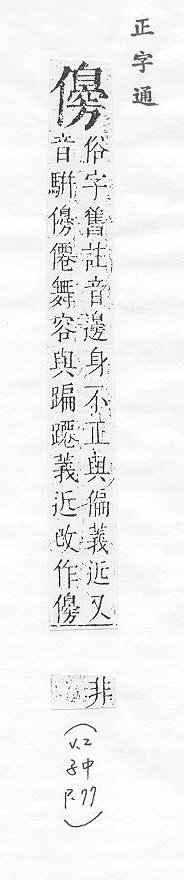 正字通
㒙
俗字舊註音邊身不正與偏義近又
音駢㒙僊舞容與蹁躚義近改作㒙
非
(V.2
子中
P.77)